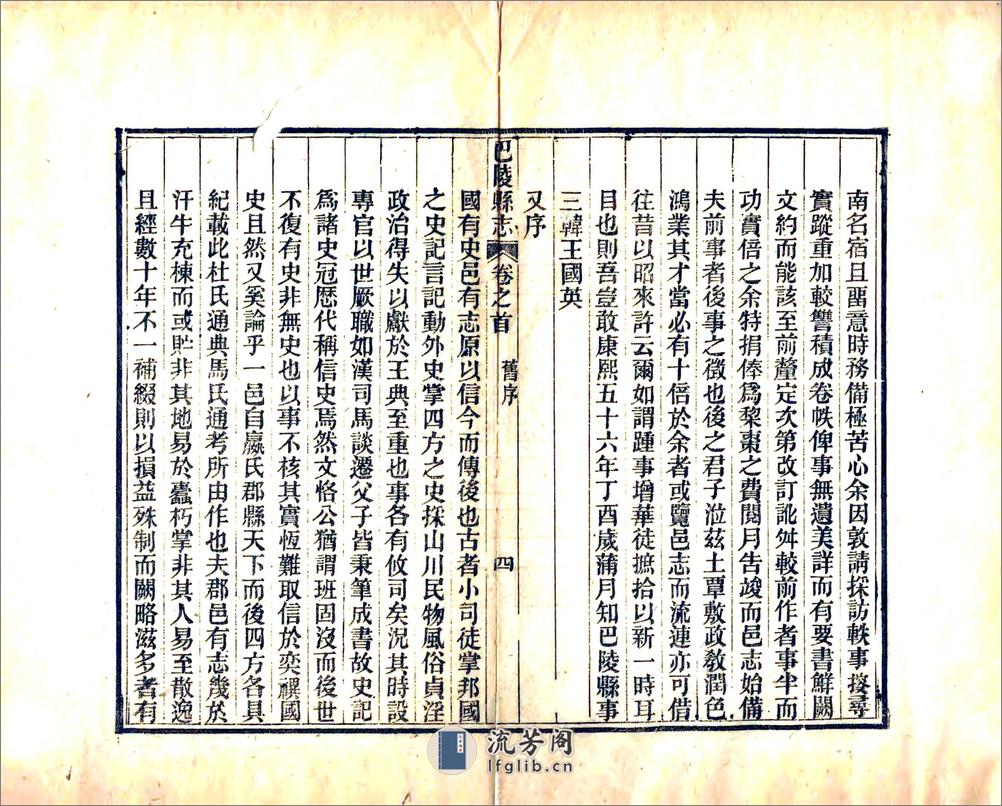 南名宿且畱意時務備極苦心余因敦請採訪軼事搜尋
實蹤重加較讐積成卷帙俾事無遺美詳而有要書鮮闕
文約而能該至前釐定次第改訂訛舛較前作者事半而
功實倍之余特捐俸爲棃棗之費閱月告竣而邑志始備
夫前事者後事之徵也後之君子涖茲土覃敷政敎潤色
鴻業其才當必有十倍於余者或覽邑志而流連亦可借
往昔以昭來許云爾如謂踵事增華徒摭拾以新一時耳
目也則吾豈敢康熙五十六年丁酉歲蒲月知巴陵縣事
三韓王國英
又序
巴陵縣志 卷之首 舊序 四
國有史邑有志原以信今而傳後也古者小司徒掌邦國
之史記言記動外史掌四方之史採山川民物風俗貞淫
政治得失以獻於王典至重也事各有攸司矣況其時設
專官以世厥職如漢司馬談遷父子皆秉筆成書故史記
爲諸史冠歷代稱信史焉然文恪公猶謂班固沒而後世
不復有史非無史也以事不核其實恆難取信於奕禩國
史且然又奚論乎一邑自嬴氏郡縣天下而後四方各具
紀載此杜氏通典馬氏通考所由作也夫郡邑有志幾於
汗牛充棟而或貯非其地易於蠹朽掌非其人易至散逸
且經數十年不一補綴則以損益殊制而闕略滋多者有
流芳阁
lfglib.cn